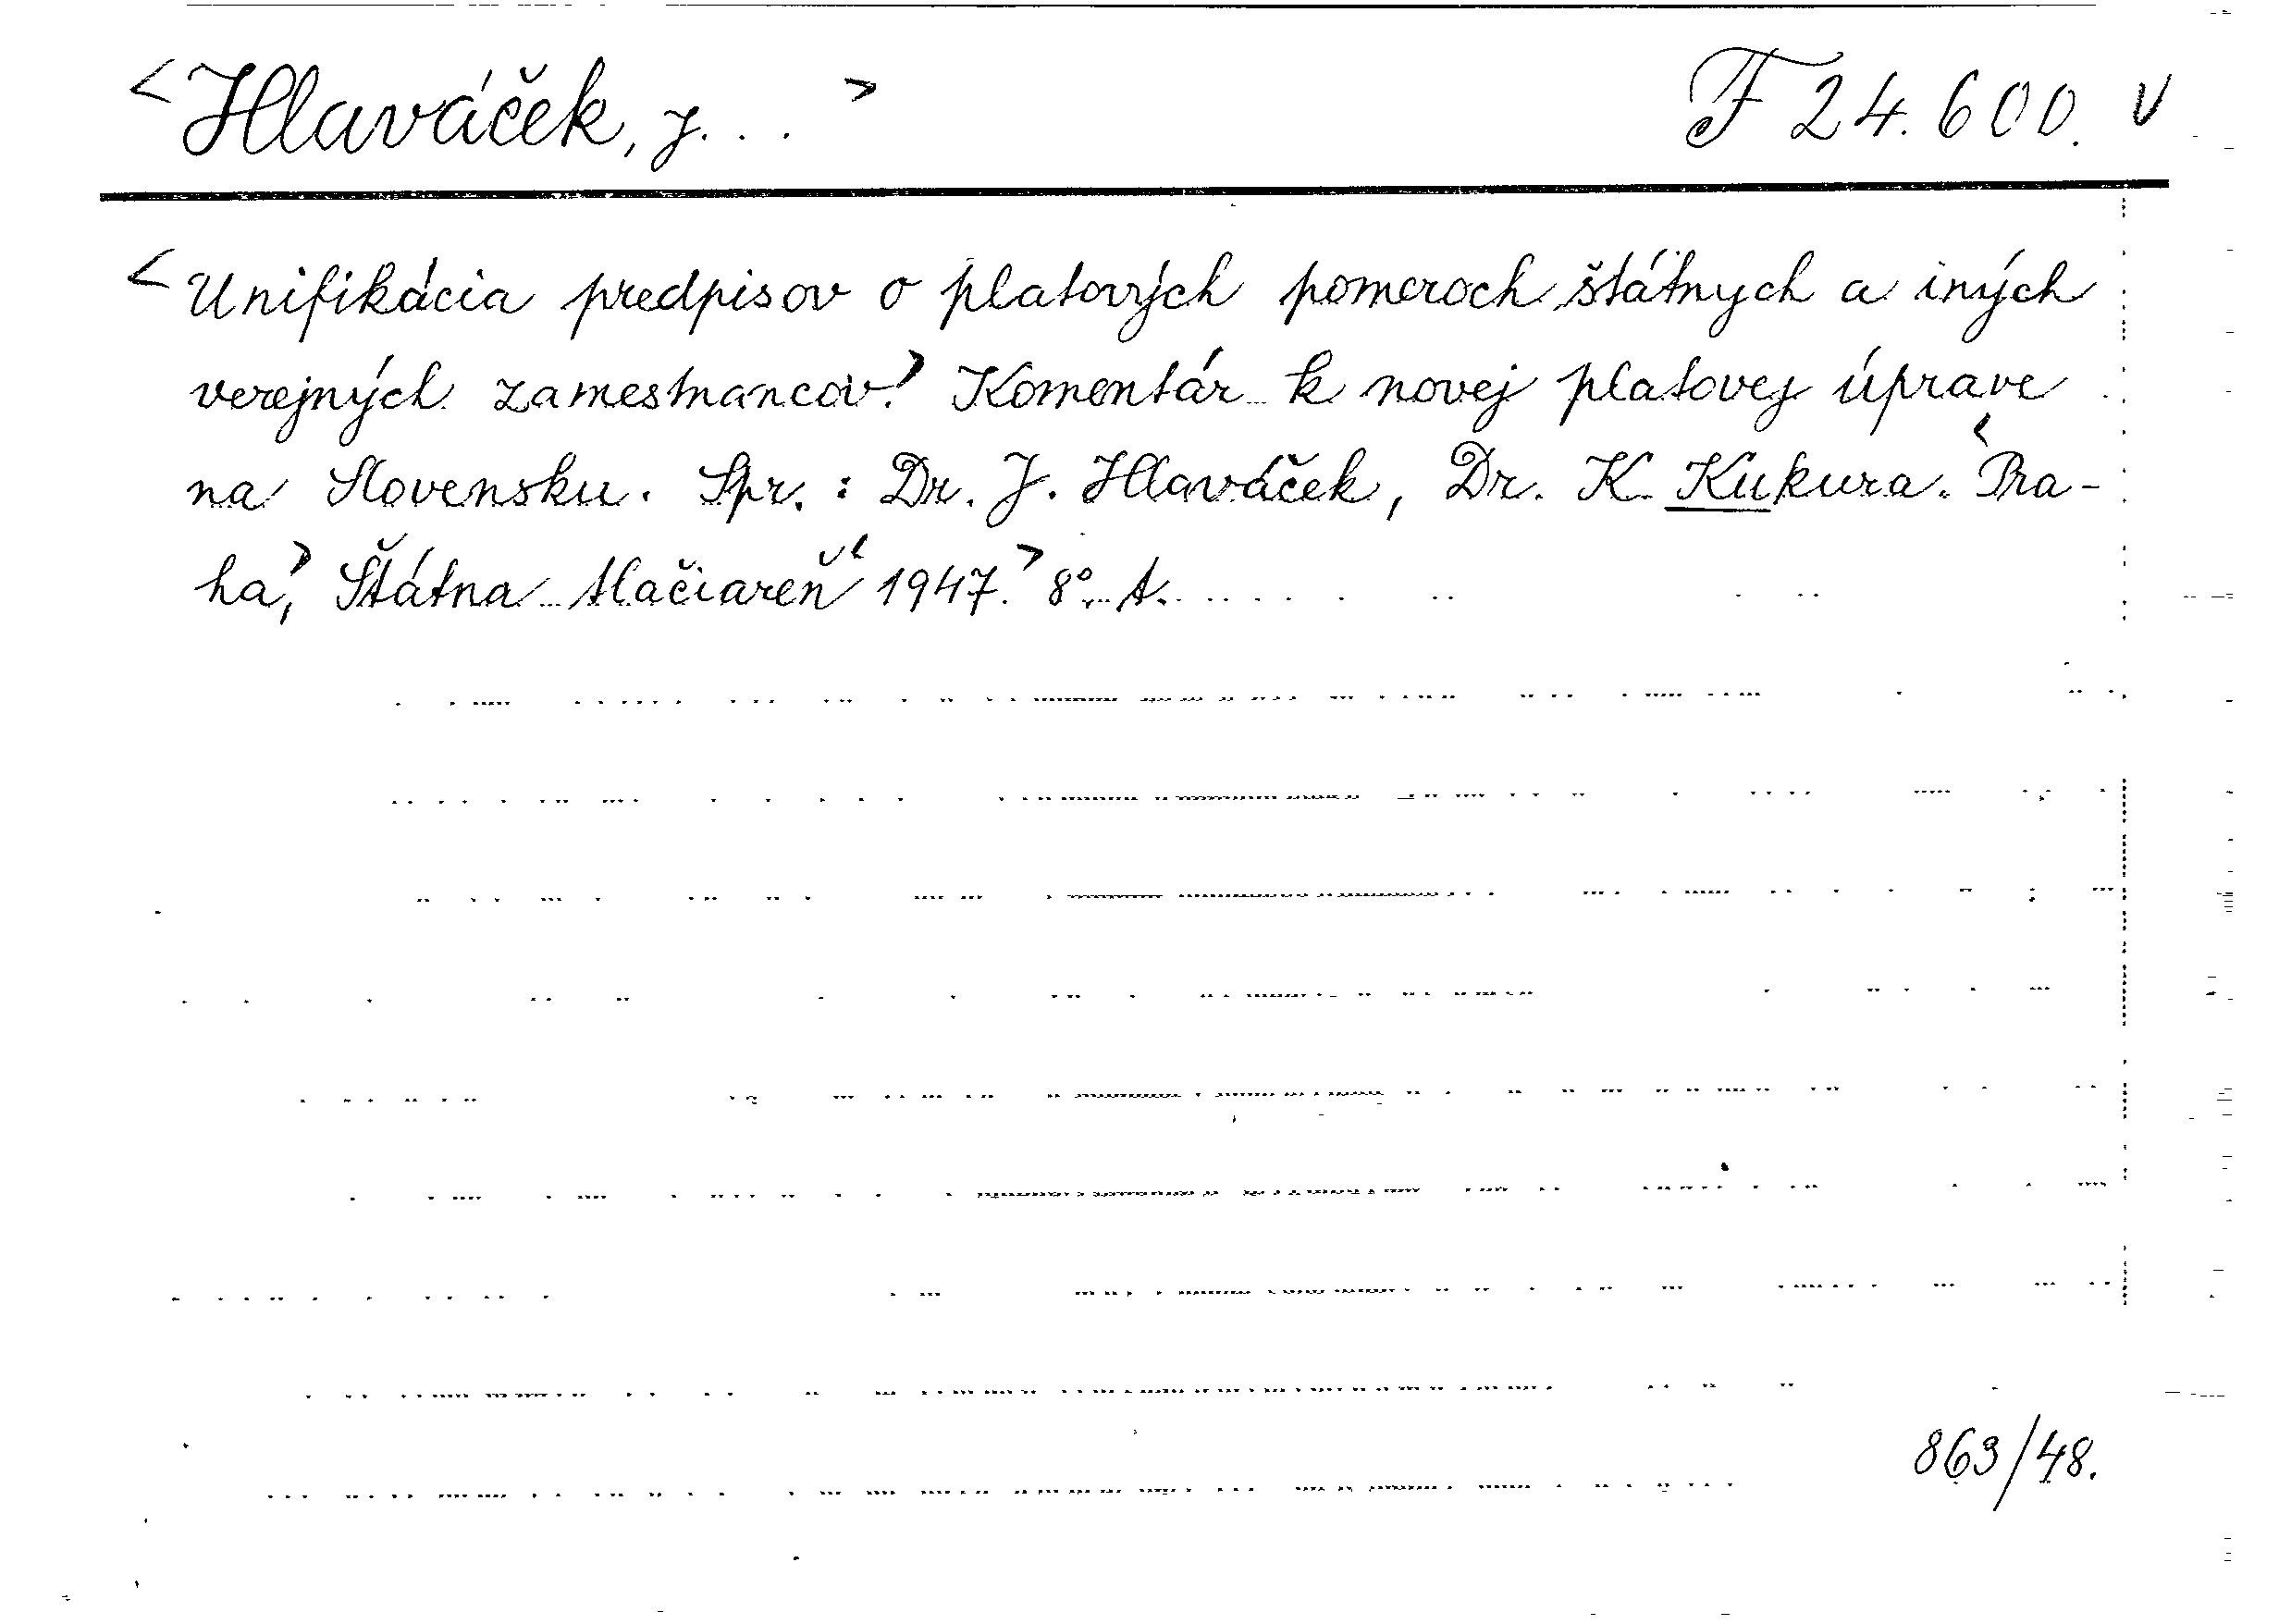 <Hlaváček, J...> F 24.600. v
<Unifikácia predpisov o platových pomeroch štátnych a iných
verejných zamestnancov.> Komentár k novej platovej úprave
na Slovensku. Spr.: Dr. J. Hlaváček, Dr. K. Kukura. <Pra-
ha,> Štátna tlačiareň <1947.> 8°. A.
863/48.